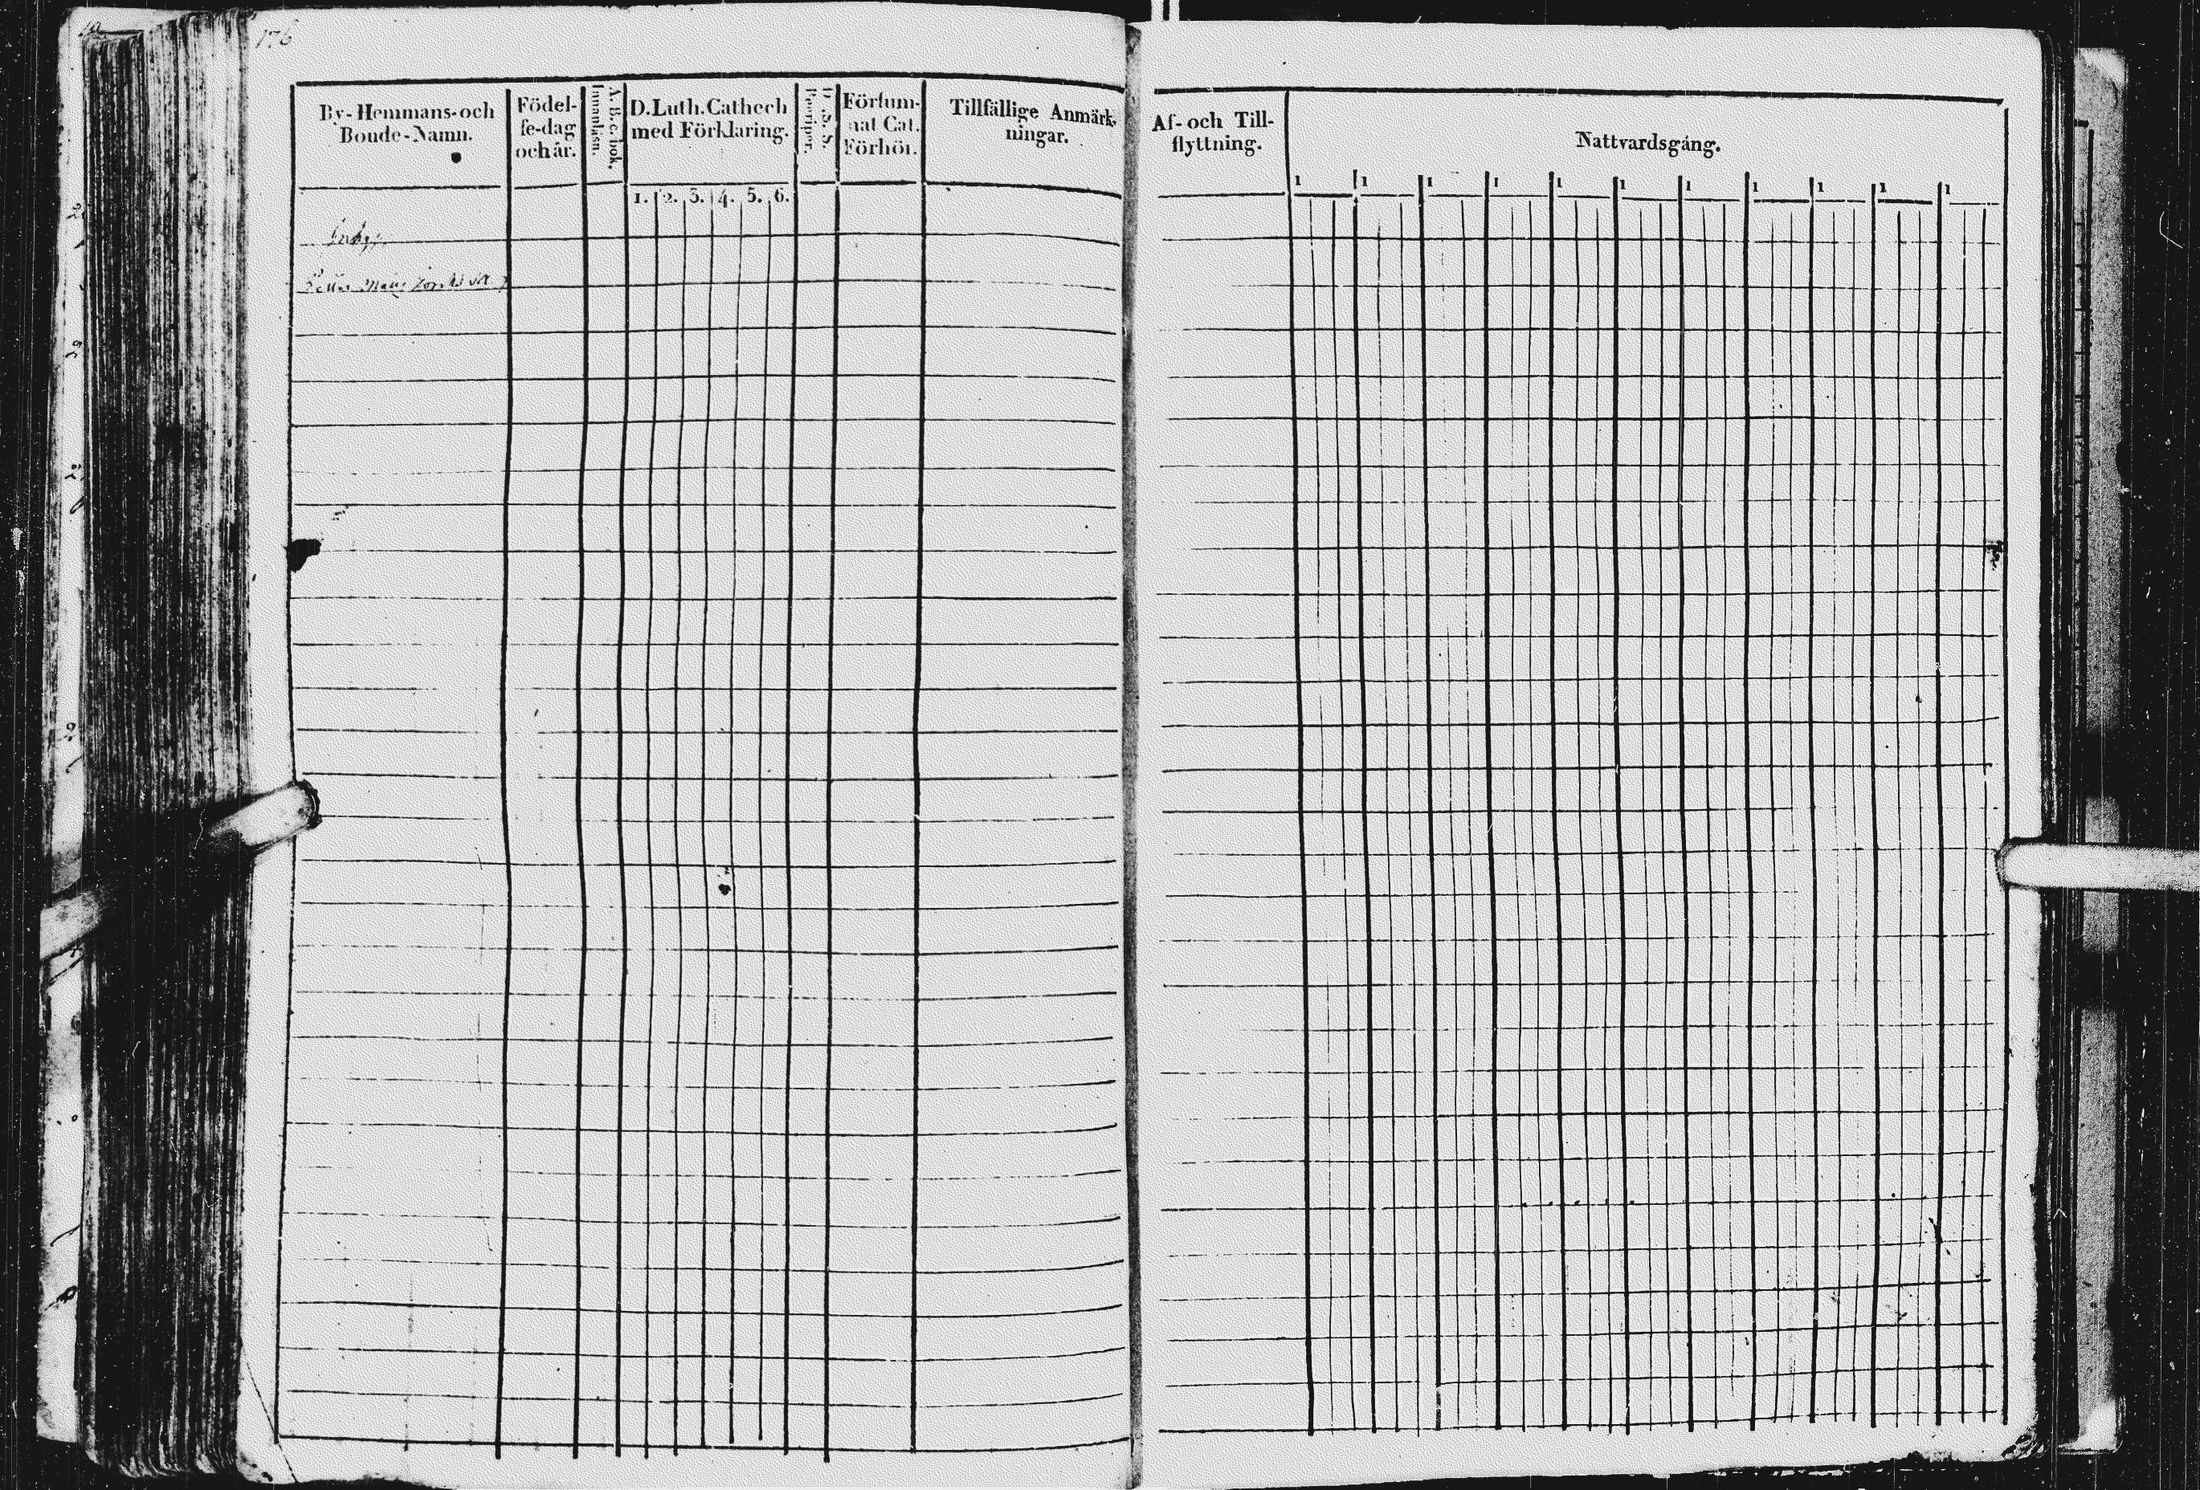 176
By-Hemmans-och
Bonde-Namn.
Födel-
se-dag
och år.
A.B.c.bok.
Innanläsn.
D.Luth.Cathech
med Förklaring.
1. 2. 3. 4. 5. 6.
Försum-
nat Cat.
Förhör.
Tillfällige Anmärk-
ningar.
Af- och Till-
flyttning.
Nattvardsgång.
1 1 1 1 1 1 1 1 1 1 1